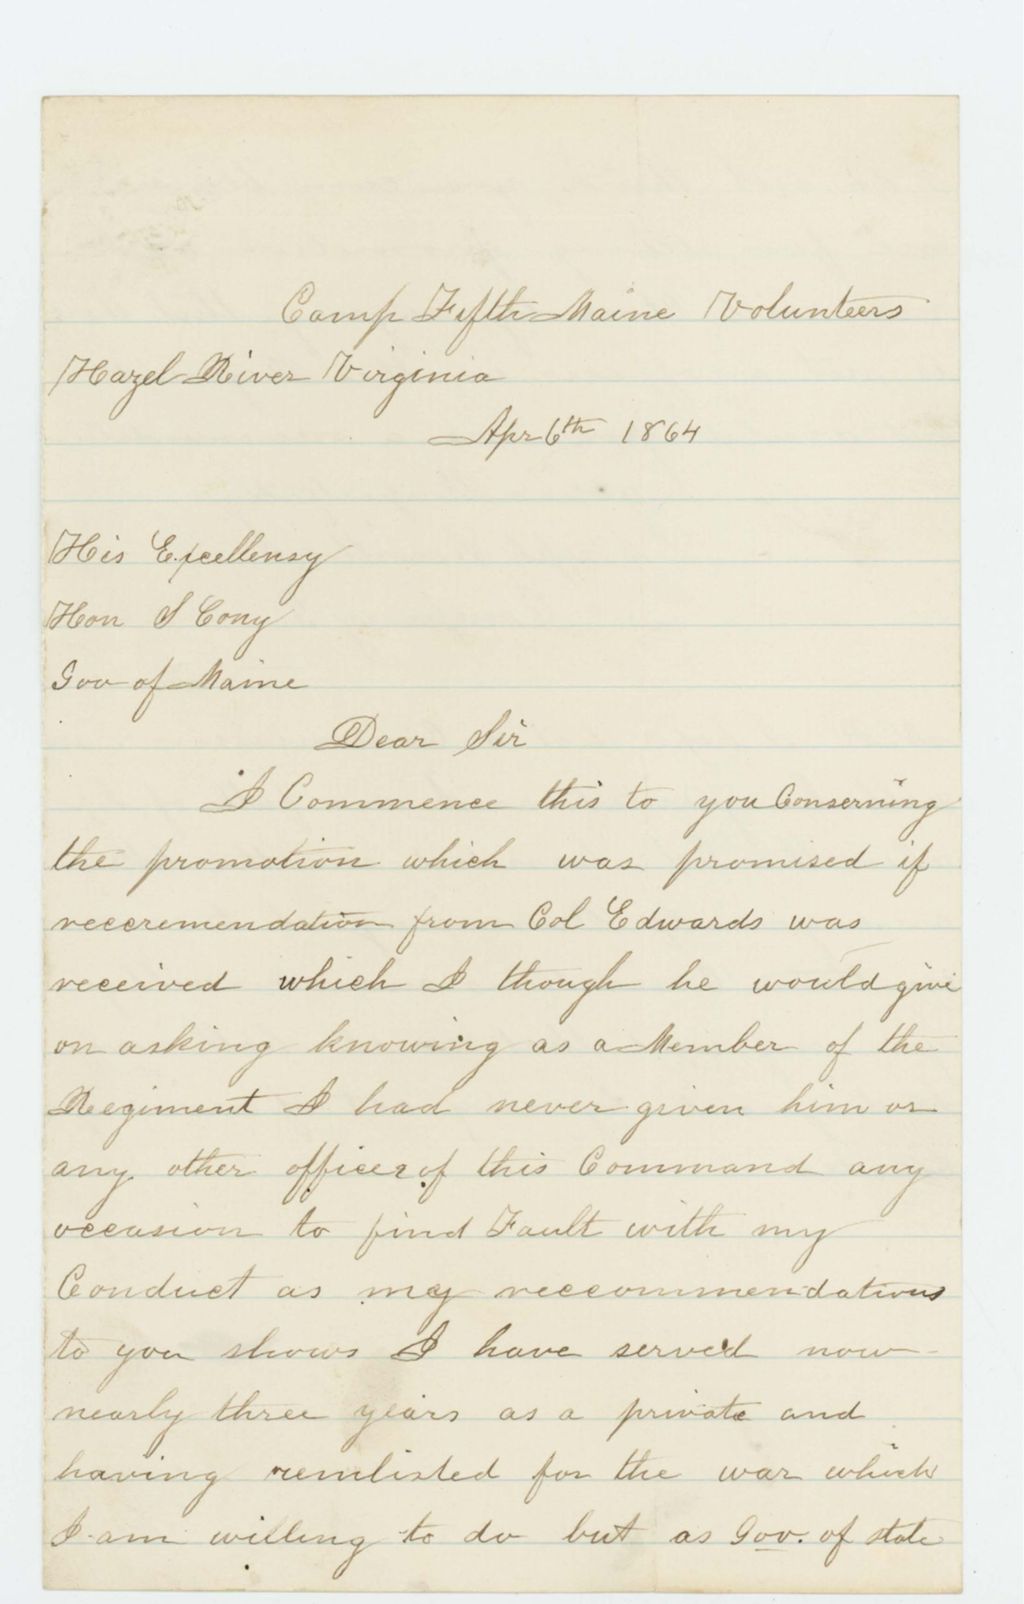 Camp Fifth Maine Volunteers
Hazel River Virginia
Apr 6th 1864
His Excellensy
Hon S Cony
Gov of Maine
Dear Sir
I Commence this to you Conserning
the promotion which was promised if
reccremendation from Col Edwards was
received which I though he would give
on asking knowing as a Member of the
Regiment I had never given him or
any other officer of this Command any
occasion to find Fault with my
Conduct as my reccommendations
to you shows I have served now
nearly three years as a private and
having renlisted for the war which
I am willing to do but as Gov. of state